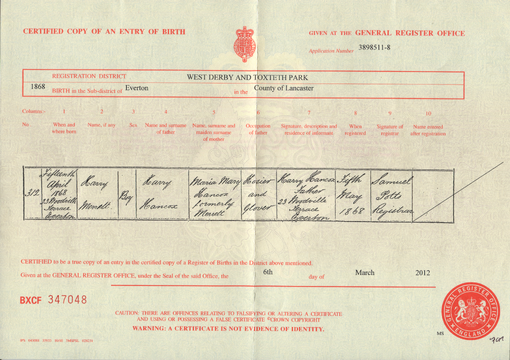 CERTIFIED COPY OF AN ENTRY OF BIRTH
GIVEN AT THE GENERAL REGISTER OFFICE
Application Number 3898511-8
REGISTRATION DISTRICT WEST DERBY AND TOXTETH PARK
1868 BIRTH in the Sub-district of Everton in the County of Lancaster
Columns:- 1 2 3 4 5 6 7 8 9 10
No. When and where born Name, if any Sex Name and surname of father Name, surname and maiden surname of mother Occupation of father Signature, description and residence of informant When registered Signature of registrar Name entered after registration
Fifteenth Harry Harry Maria Mary Hosier Harry Hancox Fifth Samuel
April Hancox and Father May Potts
312 1868 Boy formerly 23 Woodville
23 Woodville Hancox Glover Terrace 1868 Registrar
Terrace Everton
Everton
CERTIFIED to be a true copy of an entry in the certified copy of a Register of Births in the District above mentioned.
Given at the GENERAL REGISTER OFFICE, under the Seal of the said Office, the 6th day of March 2012
BXCF 347048
CAUTION: THERE ARE OFFENCES RELATING TO FALSIFYING OR ALTERING A CERTIFICATE
AND USING OR POSSESSING A FALSE CERTIFICATE ©CROWN COPYRIGHT
WARNING: A CERTIFICATE IS NOT EVIDENCE OF IDENTITY.
GENERAL REGISTER OFFICE
ENGLAND